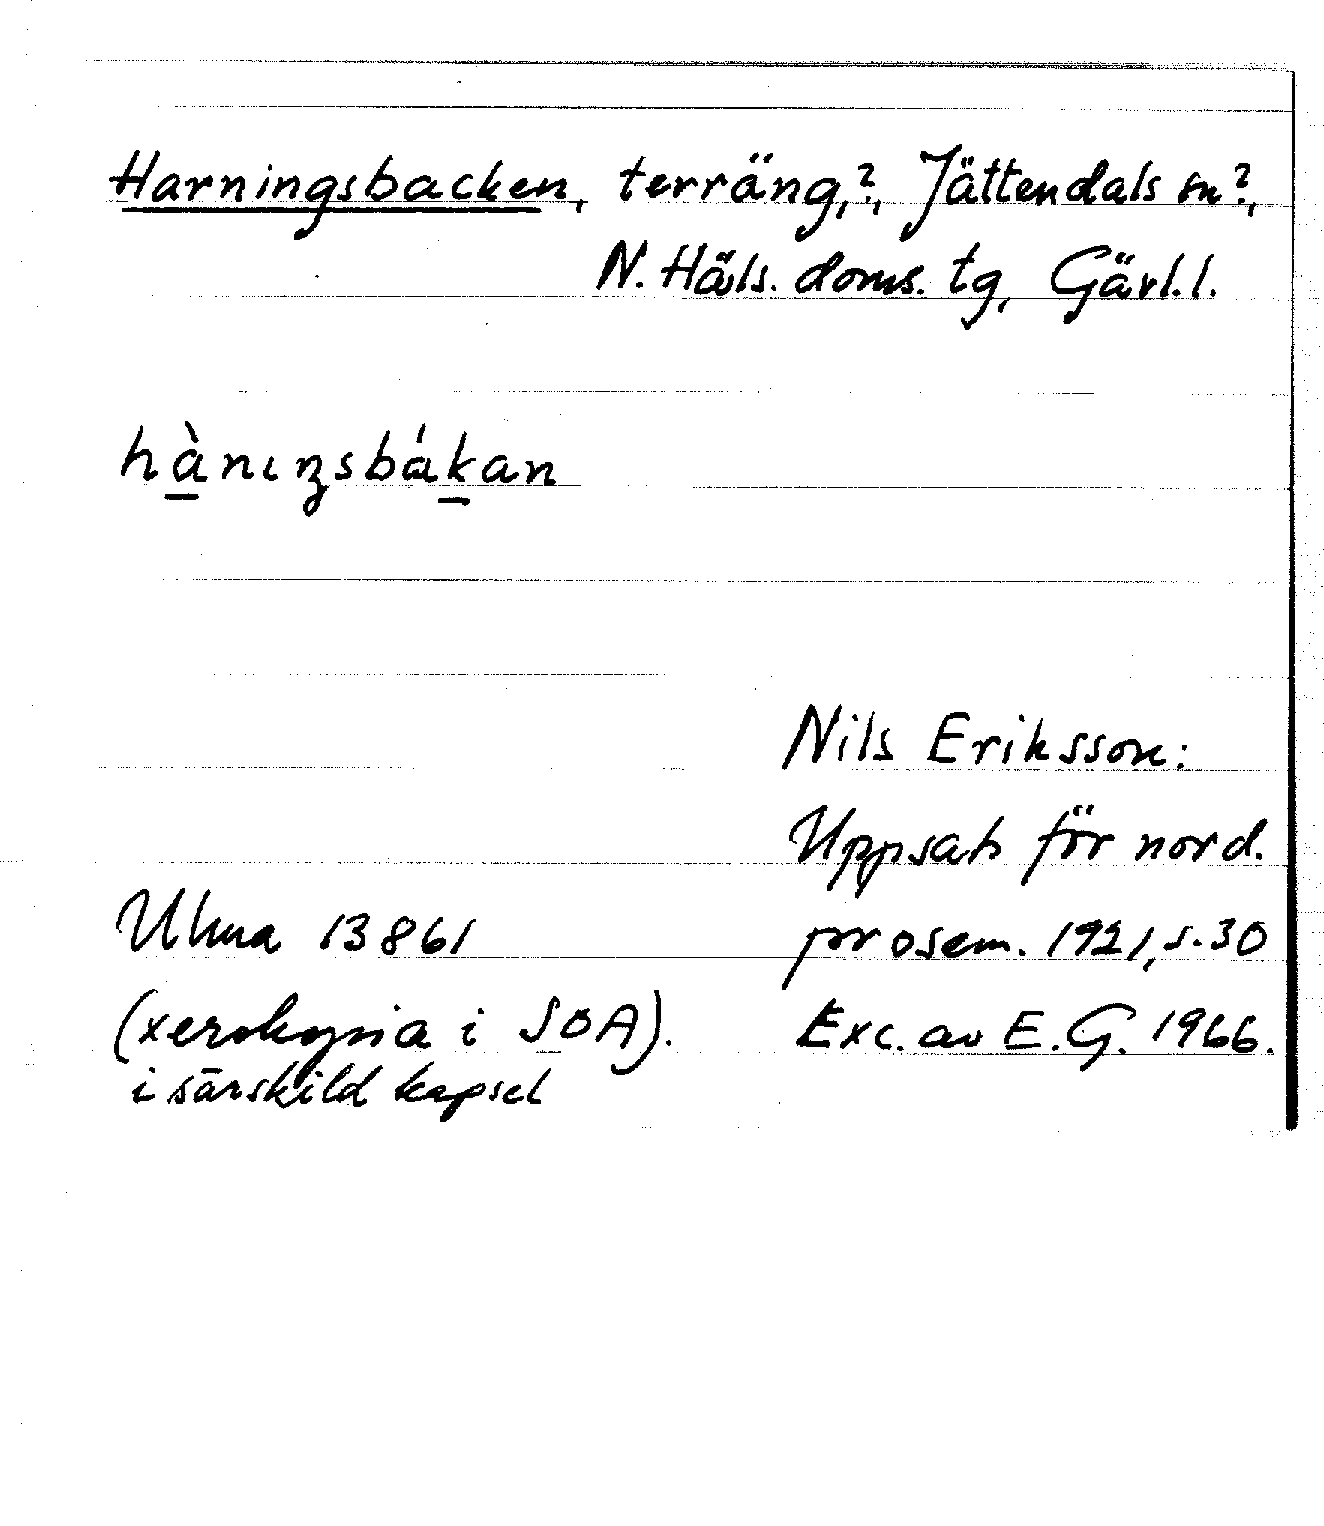 Harningsbacken, terräng,?, Jättendals sn?,
N. Häls. doms. tg, Gävl. l.
hànıŋsbákan
Nils Eriksson:
Uppsats för nord.
Uluma 13861
prosem. 1921, s. 30
(xerokopia i SOA).
Exc. av E. G. 1966.
i särskild kapsel